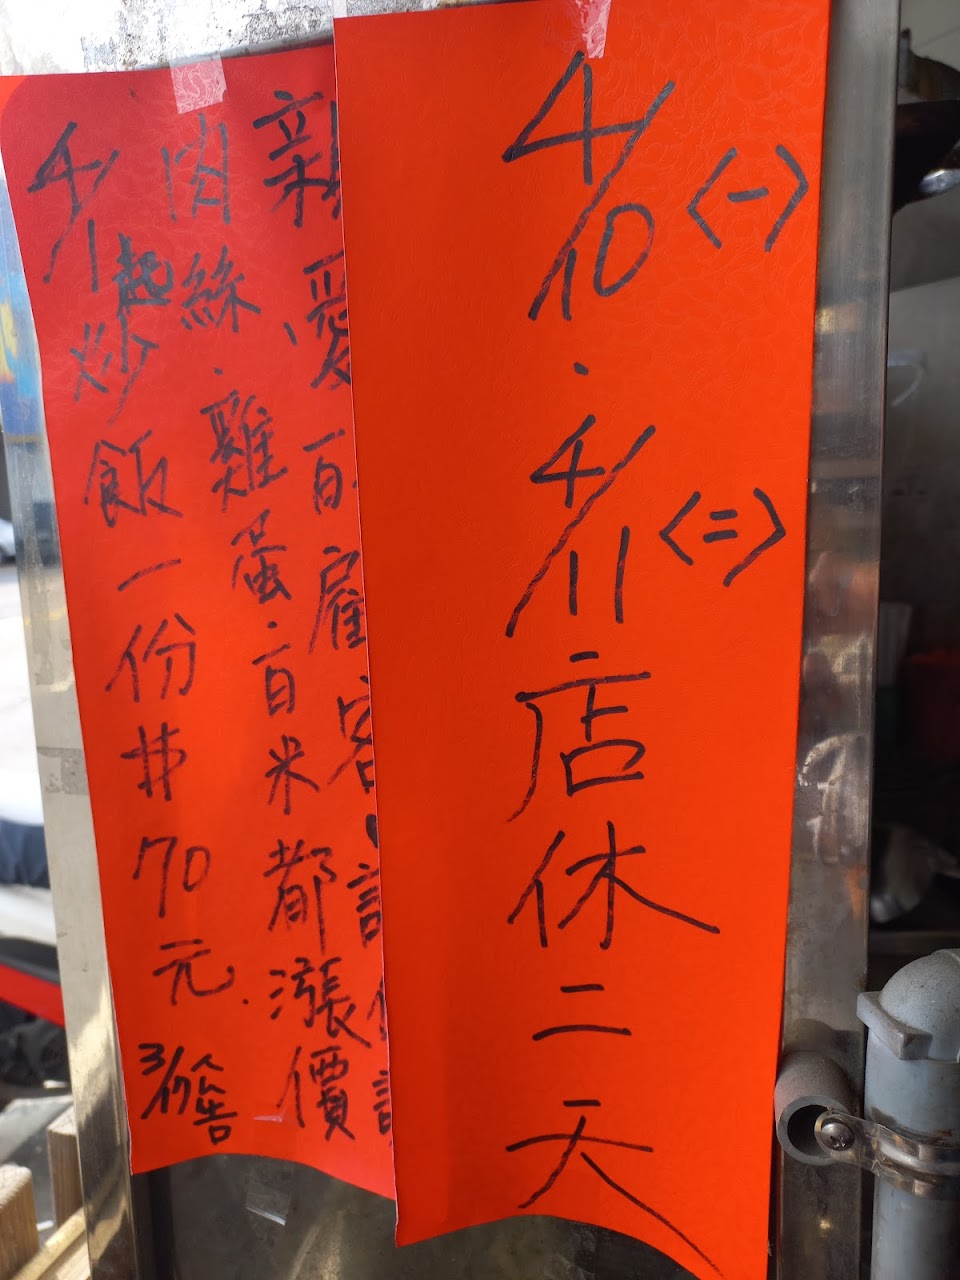 4/10(一)
.4/11(二)店休二天
親愛的顧客,請
肉絲.雞蛋.白米都漲價
4/1起炒飯一份#70元.
3/17公告